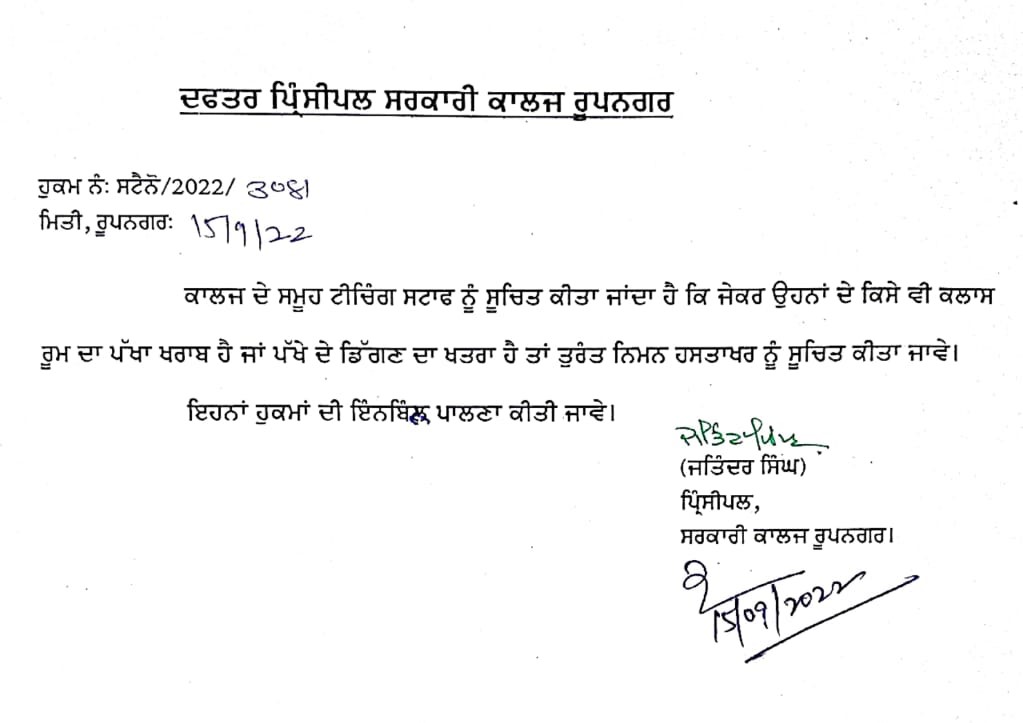 ਦਫਤਰ ਪ੍ਰਿੰਸੀਪਲ ਸਰਕਾਰੀ ਕਾਲਜ ਰੂਪਨਗਰ
ਹੁਕਮ ਨੰ: ਸਟੈਨੋ/2022/ 3081
ਮਿਤੀ, ਰੂਪਨਗਰ: 15/9/22
ਕਾਲਜ ਦੇ ਸਮੂਹ ਟੀਚਿੰਗ ਸਟਾਫ ਨੂੰ ਸੂਚਿਤ ਕੀਤਾ ਜਾਂਦਾ ਹੈ ਕਿ ਜੇਕਰ ਉਹਨਾਂ ਦੇ ਕਿਸੇ ਵੀ ਕਲਾਸ
ਰੂਮ ਦਾ ਪੱਖਾ ਖਰਾਬ ਹੈ ਜਾਂ ਪੱਖੇ ਦੇ ਡਿੱਗਣ ਦਾ ਖਤਰਾ ਹੈ ਤਾਂ ਤੁਰੰਤ ਨਿਮਨ ਹਸਤਾਖਰ ਨੂੰ ਸੂਚਿਤ ਕੀਤਾ ਜਾਵੇ।
ਇਹਨਾਂ ਹੁਕਮਾਂ ਦੀ ਇੰਨਬਿੰਨ ਪਾਲਣਾ ਕੀਤੀ ਜਾਵੇ।
(ਜਤਿੰਦਰ ਸਿੰਘ)
ਪ੍ਰਿੰਸੀਪਲ,
ਸਰਕਾਰੀ ਕਾਲਜ ਰੂਪਨਗਰ।
15/09/2022